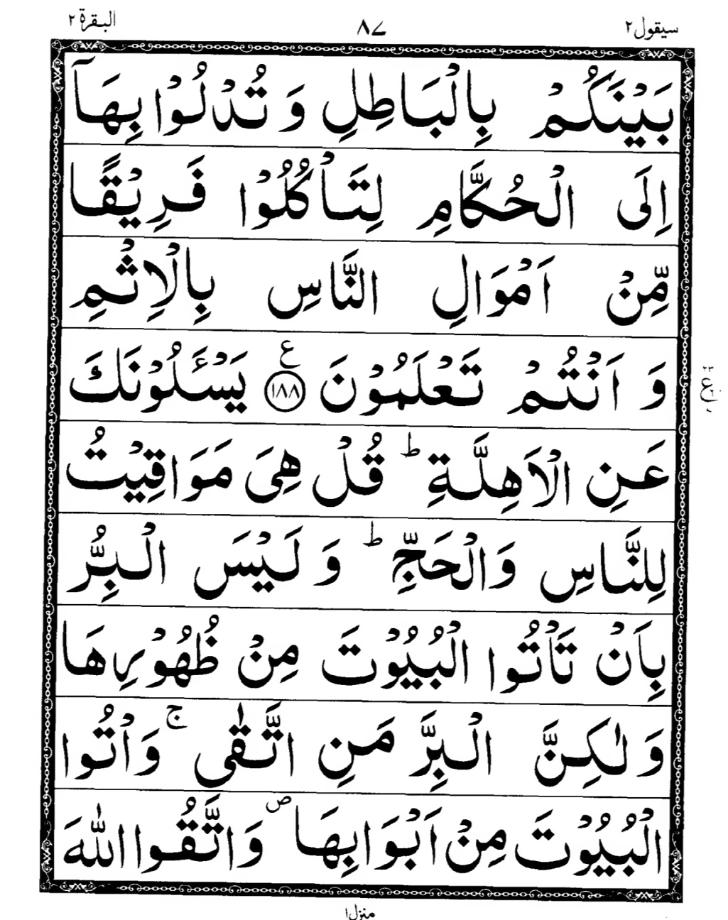 سيقول ٢ ٨٧ البقرة ٢
بَيْنَكُمْ بِالْبَاطِلِ وَ تُدْلُوْا بِهَاۤ
اِلَى الْحُكَّامِ لِتَاْكُلُوْا فَرِيْقًا
مِّنْ اَمْوَالِ النَّاسِ بِالْاِثْمِ
وَ اَنْتُمْ تَعْلَمُوْنَ ع ﴿١٨٨﴾ يَسْـَٔلُوْنَكَ
عَنِ الْاَهِلَّةِ ؕ قُلْ هِىَ مَوَاقِيْتُ
لِلنَّاسِ وَالْحَجِّ ؕ وَ لَيْسَ الْبِرُّ
بِاَنْ تَاْتُوا الْبُيُوْتَ مِنْ ظُهُوْرِهَا
وَ لٰكِنَّ الْبِرَّ مَنِ اتَّقٰى ۚ وَاْتُوا
الْبُيُوْتَ مِنْ اَبْوَابِهَا ۪ وَاتَّقُوا اللّٰهَ
منزل ١